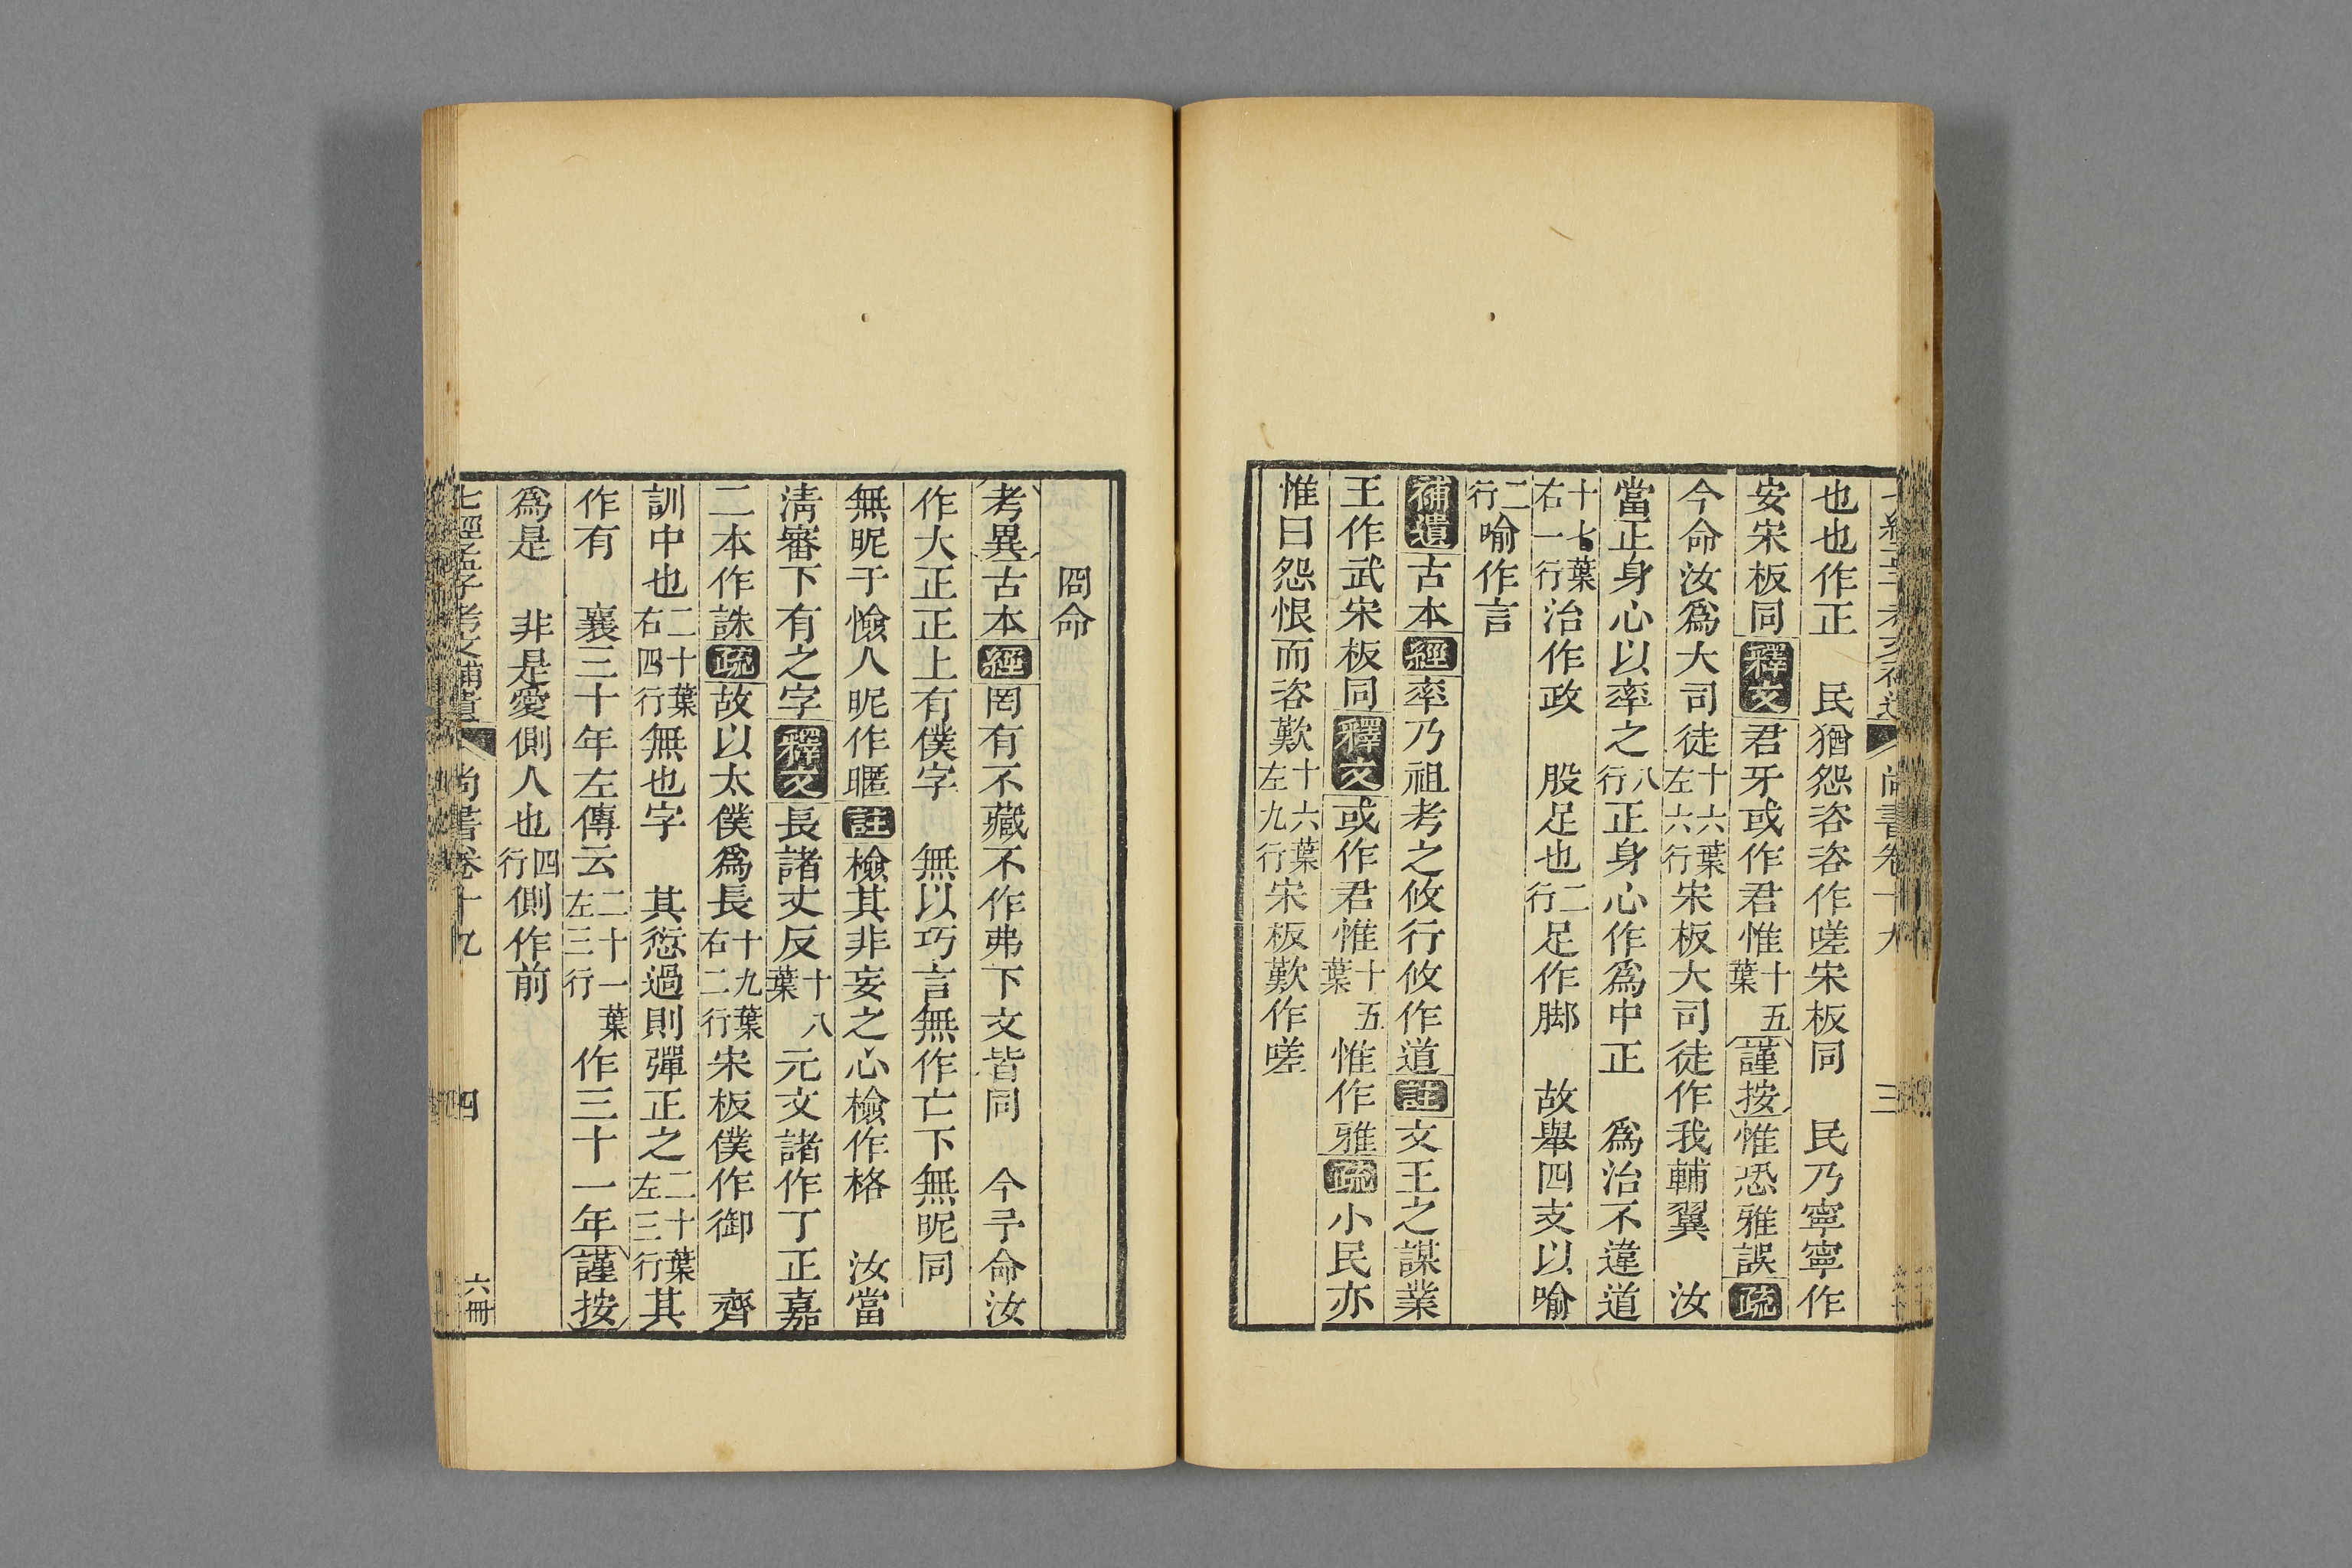 也也作正　民猶怨咨咨作嗟宋板同　民乃寧寧作
安宋板同釋文君牙或作君惟十五葉謹按惟恐雅誤疏
今命汝爲大司徒十六葉左六行宋板大司徒作我輔翼　汝
當正身心以率之八行正身心作爲中正　爲治不違道
十七葉右一行治作政　股足也二行足作脚　故舉四支以喻
二行喻作言
補遺古本經率乃祖考之攸行攸作道註文王之謀業
王作武宋板同釋文或作君惟十五葉惟作雅疏小民亦
惟曰怨恨而咨歎十六葉左九行宋板歎作嗟
冏命
考異古本經罔有不藏不作弗下文皆同　今予命汝
作大正正上有僕字　無以巧言無作亡下無昵同
無昵于憸人昵作暱註檢其非妄之心檢作格　汝當
淸審下有之字釋文長諸丈反十八葉元文諸作丁正嘉
二本作誅疏故以太僕爲長十九葉右二行宋板僕作御　齊
訓中也二十葉右四行無也字　其愆過則彈正之二十葉左三行其
作有　襄三十年左傳云二十一葉左三行作三十一年謹按
爲是　非是愛側人也四行側作前
七經孟子考文補遺　尚書卷十九　四　六冊